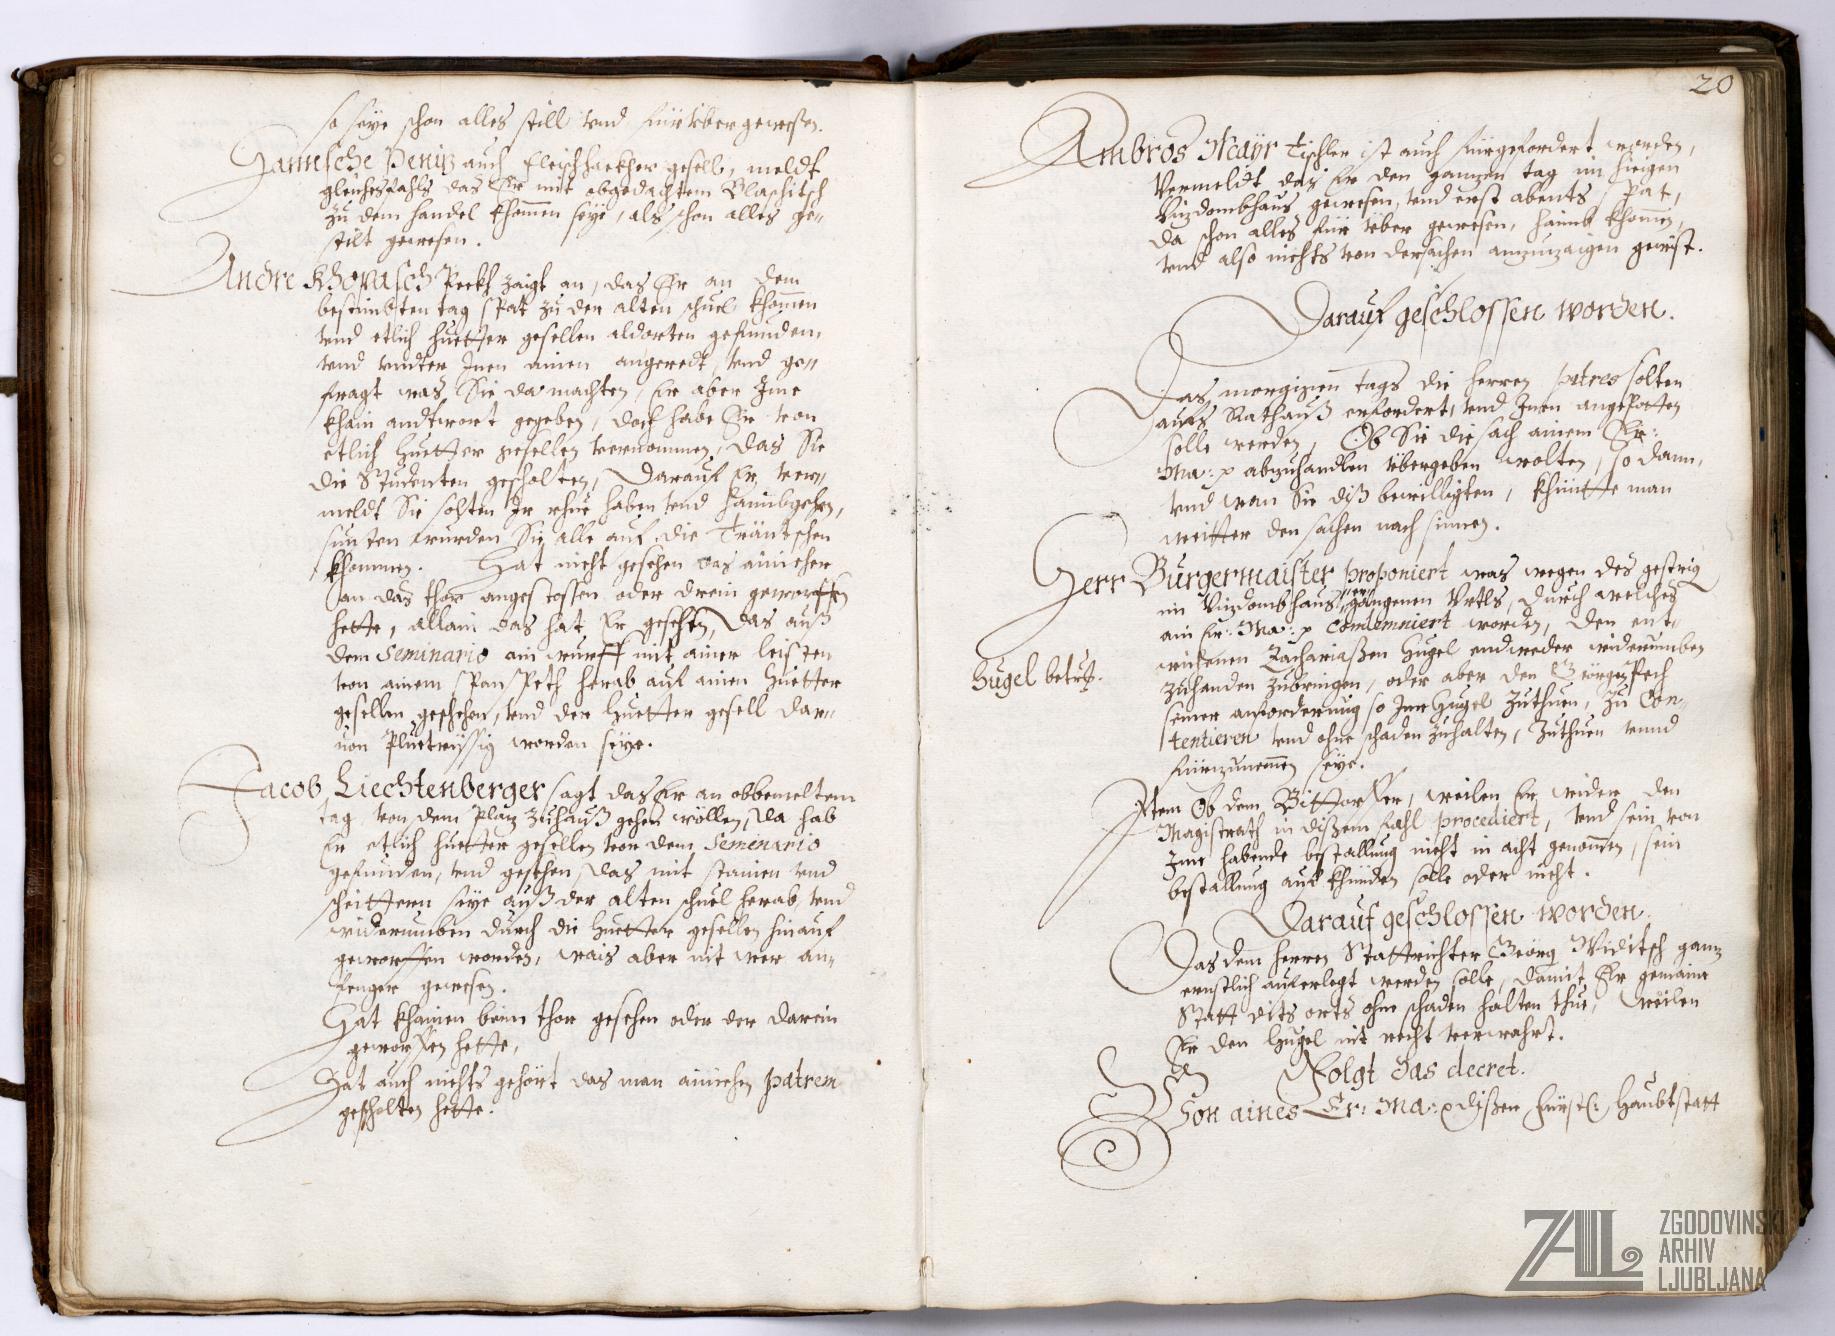 so seye schon alles still vnd fürüber gewesen.
Hannsche Peniz auch Fleischhackher gesell, meldt
gleichesfahls das Er mit obgedachtem Blaschitsch
zu dem handel khommen seye, als schon alles ge=
stilt gewesen.
Andre Khopasch Peckh zaigt an, das Er an dem
bestimbten tag spat zu der alten schuel khommen
vnd etlich huetter gesellen aldorten gefunden,
vnd vndter Inen ainen angeredt, vnd ge=
fragt was Sie da machten, Er aber Ime
khain andtwort gegeben, doch habe Er von
etlich huetter gesellen vernommen, das Sie
die Studenten gescholten, Darauf Er ver=
meldt Sie solten Ir rhue haben vnd haimbgehen,
sunsten wurden Sie alle auf die Träntschen
khommen. Hat nicht gesehen das ainicher
an das thor angestossen oder drein geworffen
hette, allain das hat Er gesehen, das auß
dem Seminario ain wurff mit ainer leisten
von ainem span Peth herab auf ainen huetter
gesellen geschehen, vnd der huetter gesell dar=
uon Pluetrüssig worden seye.
Jacob Liechtenberger sagt das Er an obbemeltem
tag von dem Plaz zuhauß gehen wöllen, da hab
Er etlich huetter gesellen vor dem Seminario
gefunden, vnd gesehen, das mit stainen vnd
scheittern seye auß der alten schuel herab vnd
widerumben durch die huetter gesellen hinauf
geworffen worden, wais aber nit wer an=
fenger gewesen.
Hat khainen beim thor gesehen oder der darein
geworffen hette,
Hat auch nichts gehört das man ainichen patrem
gescholten hette.
20
Ambros Mayr Tischler ist auch fürgefordert worden,
Vermeldt das Er den ganzen tag im hieigen
Vizdombhaus gewesen, vnd erst abents spat,
da schon alles fürüber gewesen, haimb khommen,
vnd also nichts von der sachen anzuzaigen gewist.
Darauf geschlossen worden.
Das morgigen tags die herren patres solten
aufs Rathauß erfordert, vnd Inen angepotten
solle werden, Ob Sie die sach ainem Er:
Ma: abzuhandlen übergeben wolten, so dann,
vnd wan Sie diß bewilligten, khünte man
weitter den sachen nach sinnen.
Herr Burgermaister proponiert was wegen des gestrig
im Vizdombhaus ergangenen Vrtls, durch welches
ain Er: Ma: condemniert worden, den ent=
wichenen Zachariaßen Hugel endtweder widerumben
Hugel betrf.
zuhanden zubringen, oder aber den Geörgen Pech
seiner anforderung so Ime Hugel zuthuen, zu Con=
tentieren vnd ohne schaden zuhalten, zuthuen vnnd
fürzunemen seye.
Item Ob dem Bittorffer, weilen Er wider den
Magistrath in dißem fahl procediert, vnd sein von
Ime habende bestallung nicht in acht genommen, sein
bestallung auf khünden solle oder nicht.
Darauf geschlossen worden.
Das dem herren Stattrichter Geörg Viditsch ganz
ernstlich auferlegt werden solle, damit Er gemaine
Statt dits orts ohne schaden halten thue, weilen
Er den Hugel nit recht verwahrt.
Folgt das decret.
Von aines Er: Ma: dißer fürstl: Haubtstatt
ZAL
ZGODOVINSKI
ARHIV
LJUBLJANA